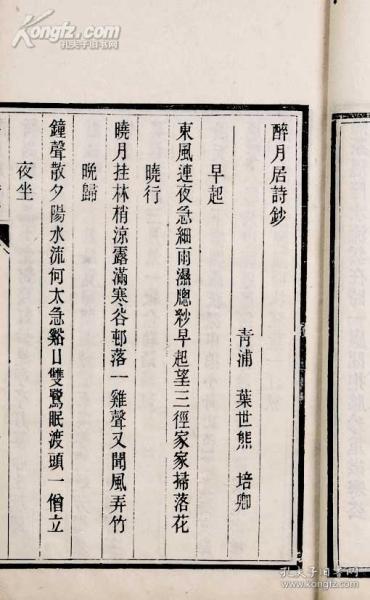 孔夫子旧书网
醉月居詩鈔
青浦 葉世熊 培卿
早起
東風連夜急細雨濕牕紗早起望三徑家家掃落花
曉行
曉月挂林梢涼露滿寒谷邨落一雞聲又聞風弄竹
晩歸
鐘聲散夕陽水流何太急谿口雙鷺眠渡頭一僧立
夜坐
孔夫子旧书网